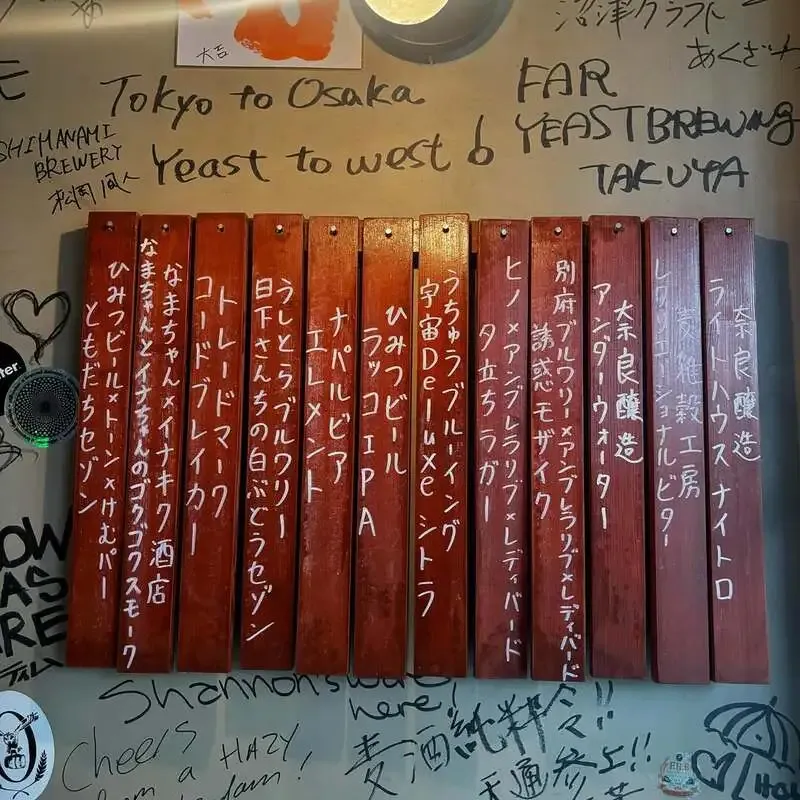 大吉
沼津クラフト
Tokyo to Osaka
Yeast to west
FAR
YEAST BREWING
TAKUYA
SHIMANAMI
BREWERY
奈良醸造
ライトハウスナイトロ
麦雑穀工房
レクリエーショナルビター
奈良醸造
アンダーウォーター
別府ブルワリー×アンブレラリブ×レディバード
誘惑モザイク
ヒノ×アンブレラリブ×レディバード
夕立ちラガー
うちゅうブルーイング
宇宙Deluxe シトラ
ひみつビール
ラッコ IPA
ナパルビア
エレメント
うしとらブルワリー
日下さんちの白ぶどうセゾン
トレードマーク
コードブレイカー
なまちゃん×イナキク酒店
なまちゃんとイナちゃんのゴクゴクスモーク
ひみつビール×トーン×けむパー
ともだちセゾン
Shannon's was
here!
Cheers
from a HAZY
麦酒純粋令!!
参上!!